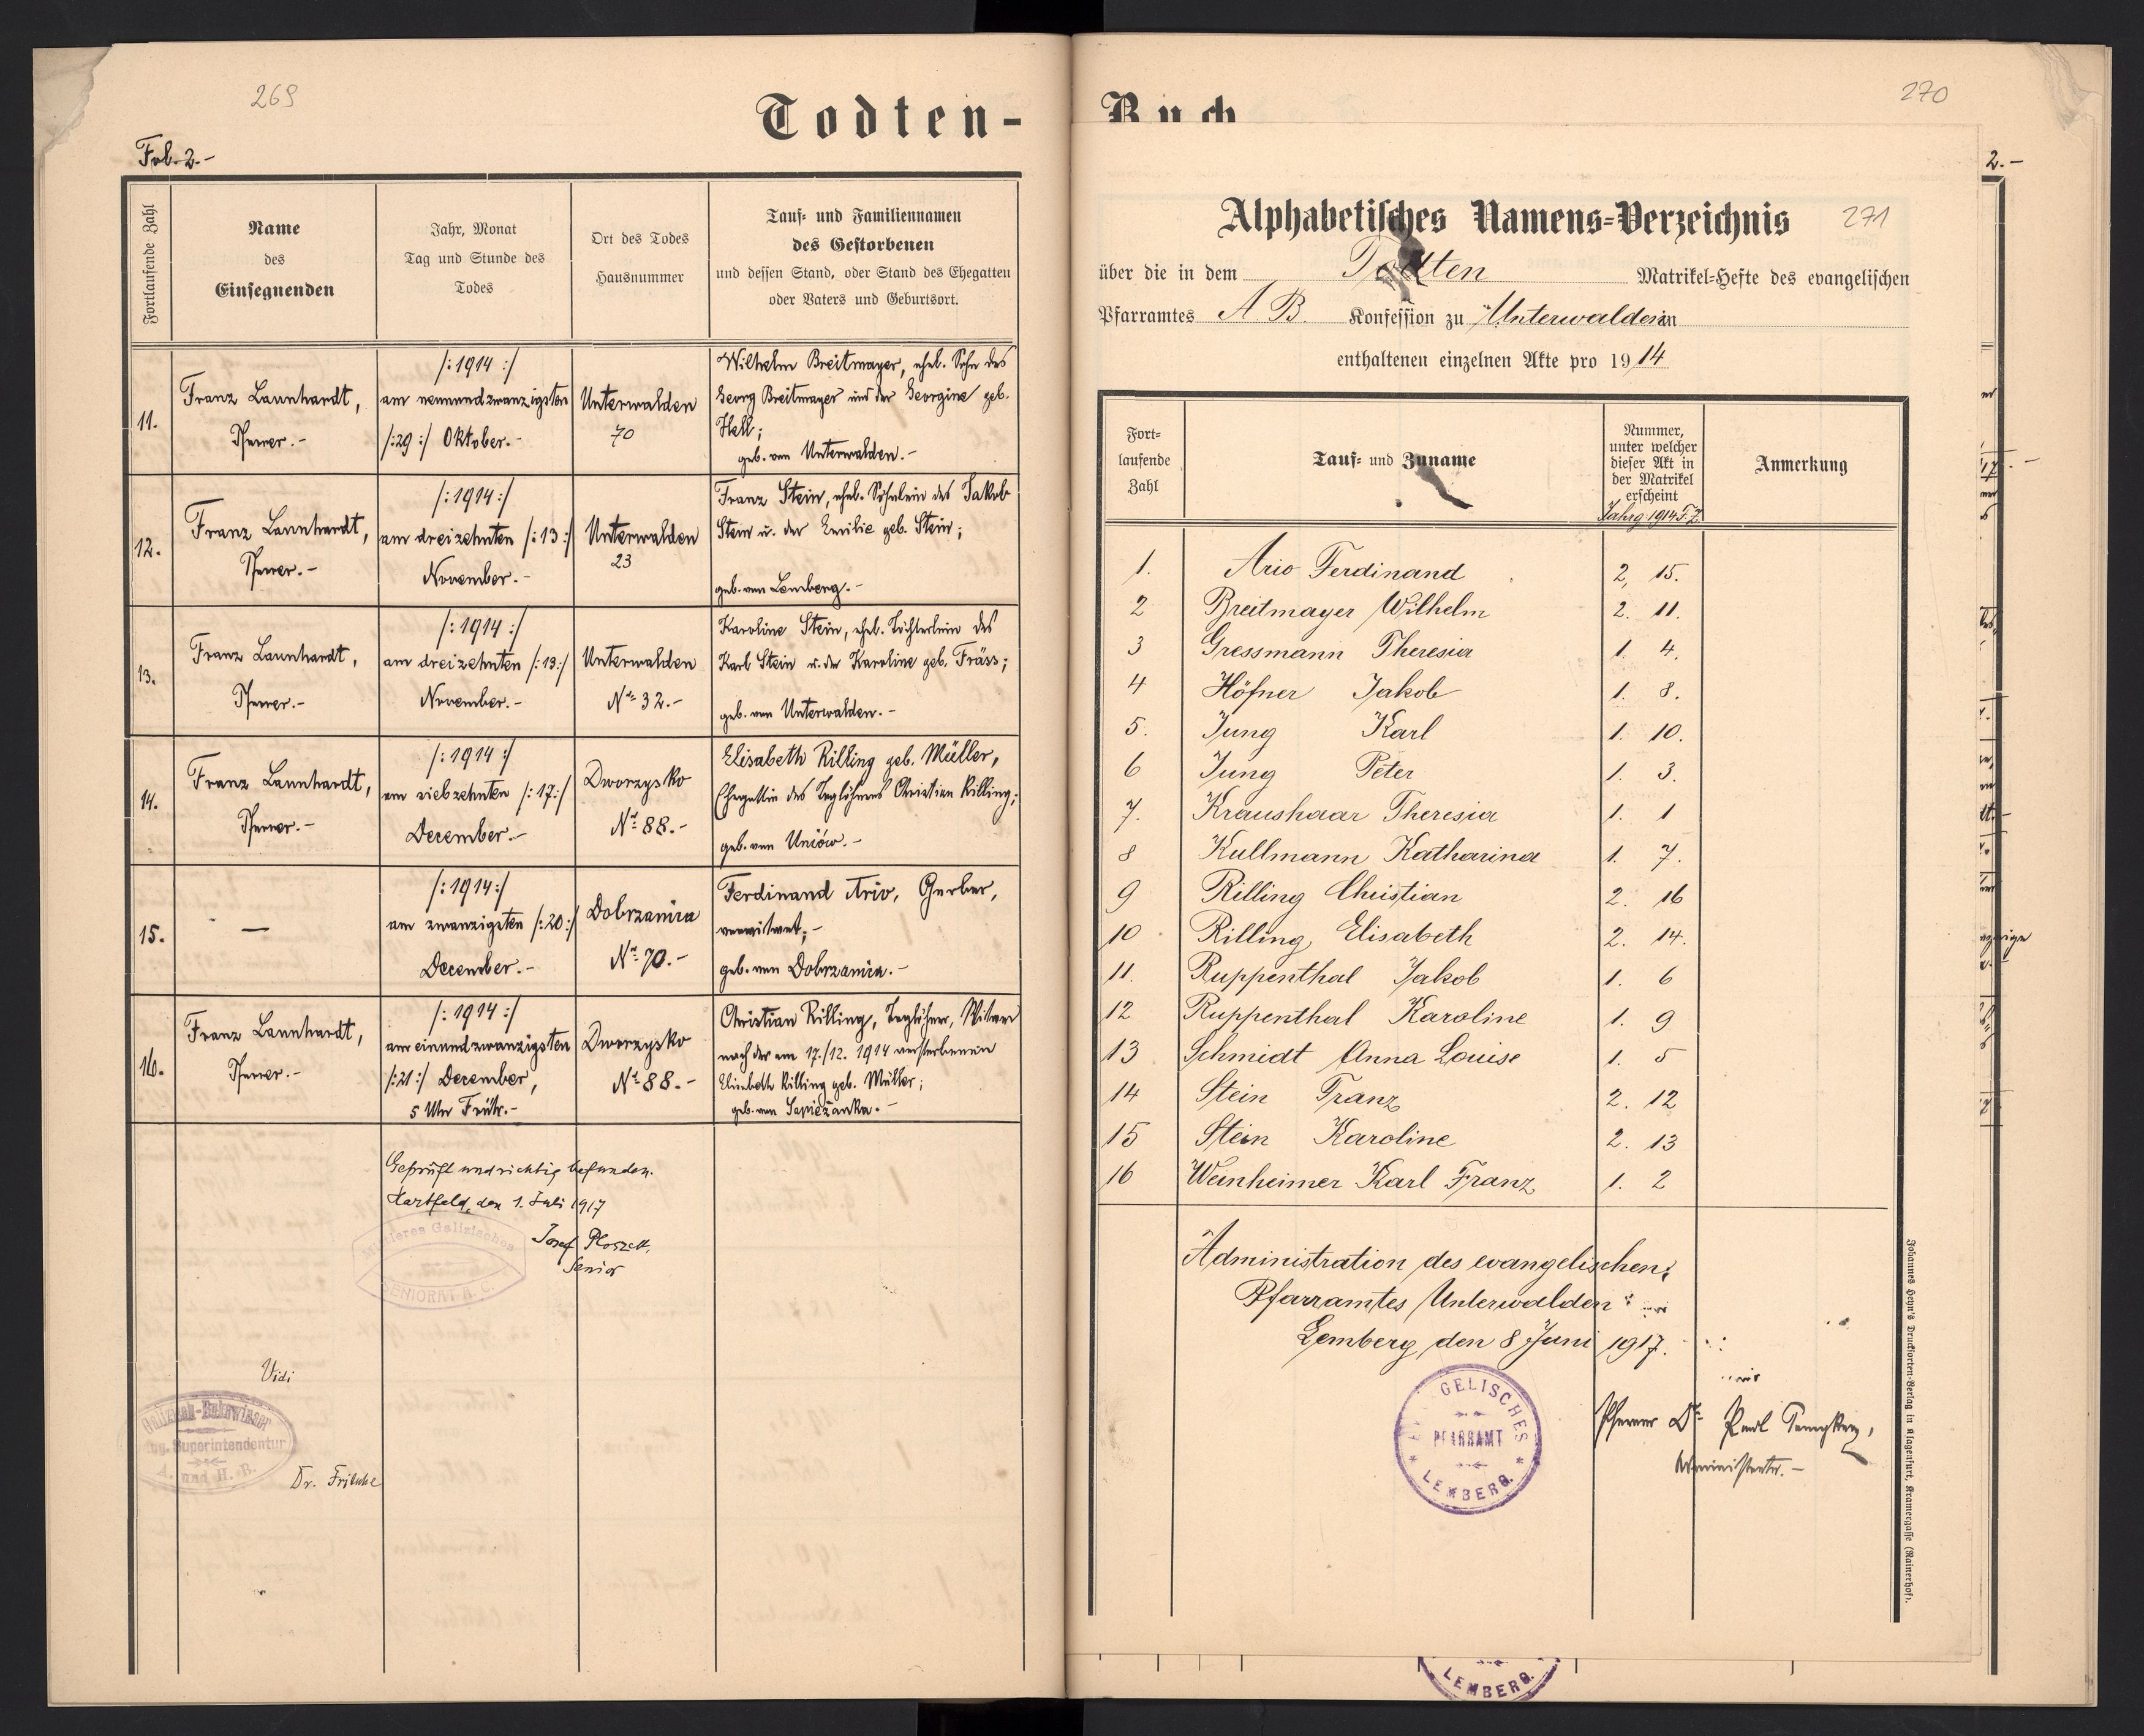 269
Todten-
Fol. 2.-
Fortlaufende Zahl
Name
des
Einsegnenden
Jahr, Monat
Tag und Stunde des
Todes
Ort des Todes
Hausnummer
Tauf- und Familiennamen
des Gestorbenen
und dessen Stand, oder Stand des Ehegatten
oder Vaters und Geburtsort.
11.
Franz Launhardt,
Pfarrer.-
/:1914:/
am neunundzwanzigsten
/:29:/ Oktober.-
Unterwalden
70
Wilhelm Breitmayer, ehel. Sohn des
Georg Breitmayer und der Georgine geb.
Hell;
geb. von Unterwalden.-
12.
Franz Launhardt,
Pfarrer.-
/:1914:/
am dreizehnten /:13:/
November.-
Unterwalden
23
Franz Stein, ehel. Söhnlein des Jakob
Stein u. der Emilie geb. Stein;
geb. von Lemberg.-
13.
Franz Launhardt,
Pfarrer.-
/:1914:/
am dreizehnten /:13:/
November.-
Unterwalden
No 32.-
Karoline Stein, ehel. Töchterlein des
Karl Stein u. der Karoline geb. Fräss;
geb. von Unterwalden.-
14.
Franz Launhardt,
Pfarrer.-
/:1914:/
am siebzehnten /:17:/
December.-
Dworzysko
No 88.-
Elisabeth Rilling geb. Müller,
Ehegattin des Taglöhners Christian Rilling;
geb. von Uniów.-
15.
—
/:1914:/
am zwanzigsten /:20:/
December.-
Dobrzanica
No 70.-
Ferdinand Ario, Gerber,
verwitwet;-
geb. von Dobrzanica.-
16.
Franz Launhardt,
Pfarrer.-
/:1914:/
am einundzwanzigsten
/:21:/ December,
5 Uhr Früh.-
Dworzysko
No 88.-
Christian Rilling, Taglöhner, Witwer
nach der am 17./12. 1914 verstorbenen
Elisabeth Rilling geb. Müller;
geb. von Sapieżanka.-
Geprüft und richtig befunden.
Hartfeld, den 1. Juli 1917
Josef Ploszek,
Senior
Mittleres Galizisches
SENIORAT A. C.
Vidi
Galizisch-Bukowinaer
Superintendentur
A. und H. B.
Dr. Fritsche
Buch
270
2.-
Alphabetisches Namens-Verzeichnis
271
über die in dem Todten Matrikel-Hefte des evangelischen
Pfarramtes A. B. Konfession zu Unterwalden
enthaltenen einzelnen Akte pro 1914
Fort-
laufende
Zahl
Tauf- und Zuname
Nummer,
unter welcher
dieser Akt in
der Matrikel
erscheint
Anmerkung
Jahrg. 1914 F.Z.
1. Ario Ferdinand 2, 15.
2 Breitmayer Wilhelm 2. 11.
3 Gressmann Theresia 1. 4.
4 Höfner Jakob 1. 8.
5. Jung Karl 1. 10.
6 Jung Peter 1. 3.
7. Kraushaar Theresia 1. 1
8 Kullmann Katharina 1. 7.
9 Rilling Christian 2. 16
10 Rilling Elisabeth 2. 14.
11. Ruppenthal Jakob 1. 6
12 Ruppenthal Karoline 1. 9
13 Schmidt Anna Louise 1. 5
14 Stein Franz 2. 12
15 Stein Karoline 2. 13
16 Weinheimer Karl Franz 1. 2
Administration des evangelischen
Pfarramtes Unterwalden
Lemberg den 8 Juni 1917.
GELISCHES
PFARRAMT
* LEMBERG. *
Pfarrer Dr
Administrator.-
Johannes Heyn's Drucksorten-Verlag in Klagenfurt, Kramergasse (Rainerhof).
LEMBERG.